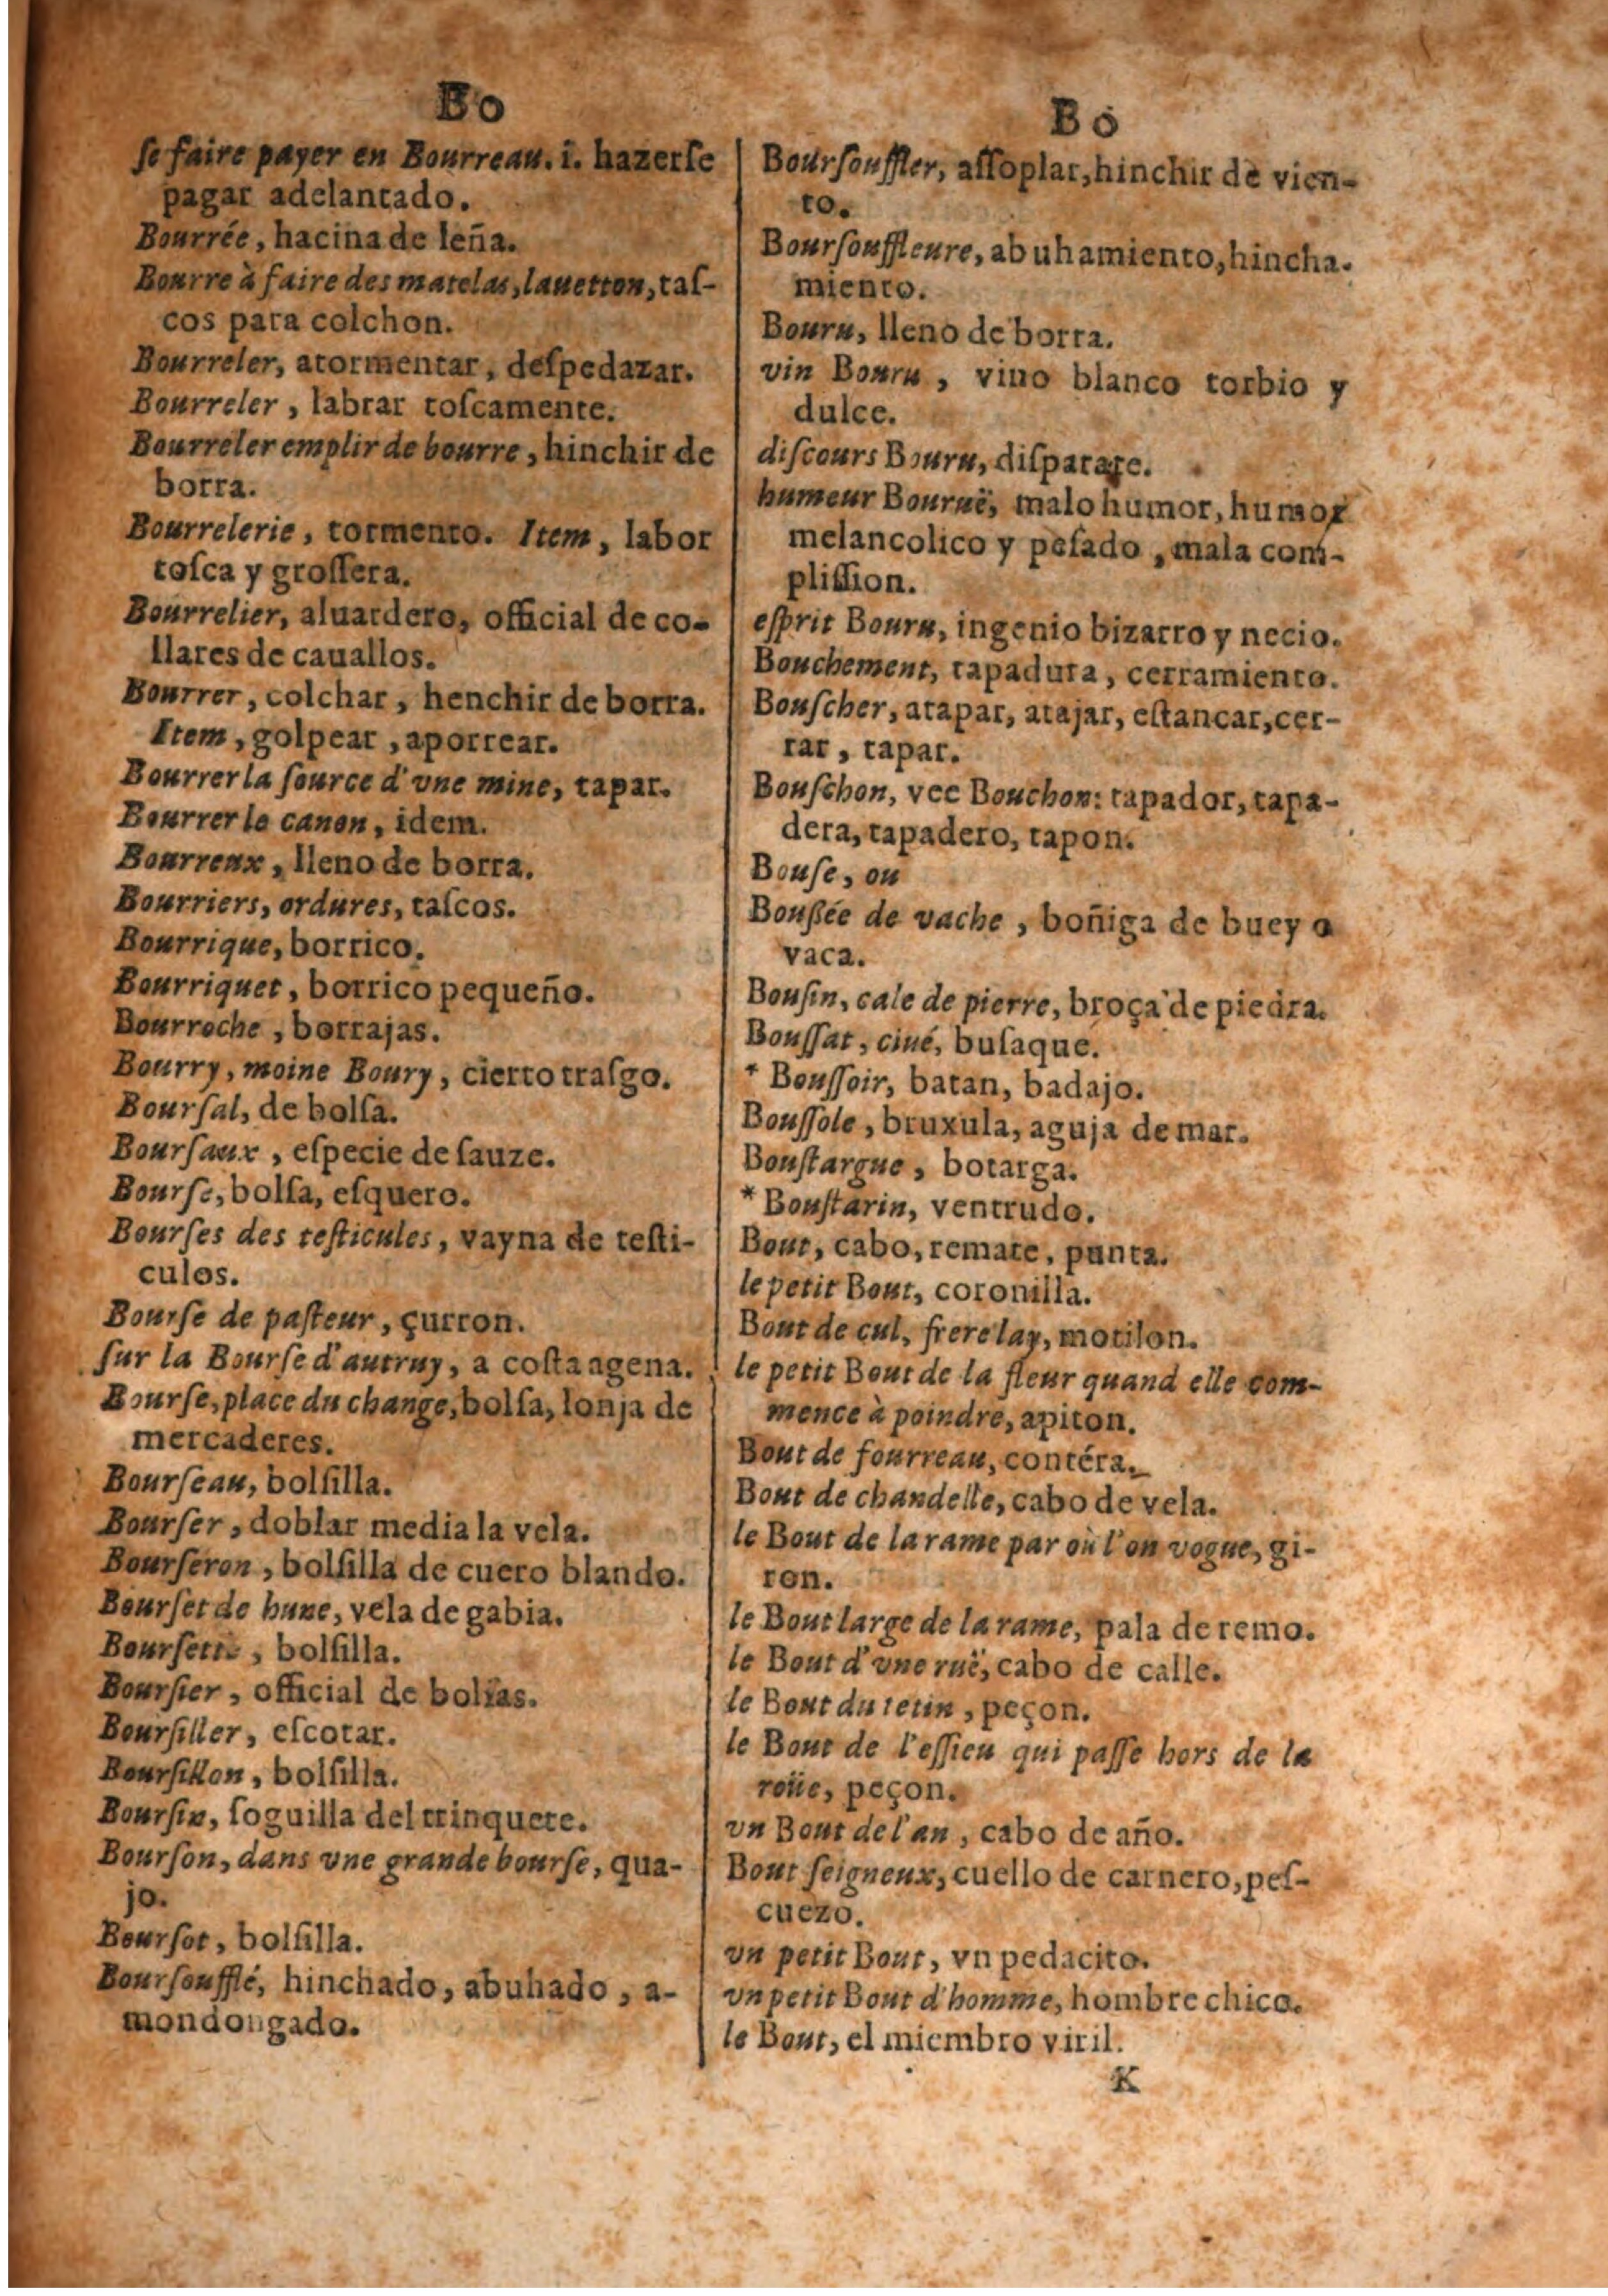 Bo
ſe faire payer en Bourreau. i. hazerſe
pagar adelantado.
Bourrée, hacina de leña.
Bourre à faire des matelas, lauetton, taſ-
cos para colchon.
Bourreler, atormentar, deſpedazar.
Bourreler, labrar toſcamente.
Bourreler emplir de bourre, hinchir de
borra.
Bourrelerie, tormento. Item, labor
toſca y groſſera.
Bourrelier, aluardero, official de co-
llares de cauallos.
Bourrer, colchar, henchir de borra.
Item, golpear, aporrear.
Bourrer la ſource d'vne mine, tapar.
Bourrer le canon, idem.
Bourreux, lleno de borra.
Bourriers, ordures, taſcos.
Bourrique, borrico.
Bourriquet, borrico pequeño.
Bourroche, borrajas.
Bourry, moine Boury, cierto traſgo.
Bourſal, de bolſa.
Bourſaux, eſpecie de ſauze.
Bourſe, bolſa, eſquero.
Bourſes des teſticules, vayna de teſti-
culos.
Bourſe de paſteur, çurron.
ſur la Bourſe d'autruy, a coſta agena.
Bourſe, place du change, bolſa, lonja de
mercaderes.
Bourſeau, bolſilla.
Bourſer, doblar media la vela.
Bourſeron, bolſilla de cuero blando.
Bourſet de hune, vela de gabia.
Bourſette, bolſilla.
Bourſier, official de bolſas.
Bourſiller, eſcotar.
Bourſillon, bolſilla.
Bourſin, ſoguilla del trinquete.
Bourſon, dans vne grande bourſe, qua-
jo.
Bourſot, bolſilla.
Bourſoufflé, hinchado, abuhado, a-
mondongado.
Bo
Bourſouffler, aſſoplar, hinchir de vien-
to.
Bourſouffleure, abuhamiento, hincha-
miento.
Bouru, lleno de borra.
vin Bouru, vino blanco torbio y
dulce.
diſcours Bouru, diſparate.
humeur Bouruë, malo humor, humor
melancolico y peſado, mala com-
pliſſion.
eſprit Bouru, ingenio bizarro y necio.
Bouchement, tapadura, cerramiento.
Bouſcher, atapar, atajar, eſtancar, cer-
rar, tapar.
Bouſchon, vee Bouchon: tapador, tapa-
dera, tapadero, tapon.
Bouſe, ou
Bouſsée de vache, boñiga de buey o
vaca.
Bouſin, cale de pierre, broça de piedra.
Bouſſat, ciué, buſaque.
* Bouſſoir, batan, badajo.
Bouſſole, bruxula, aguja de mar.
Bouſtargue, botarga.
* Bouſtarin, ventrudo.
Bout, cabo, remate, punta.
le petit Bout, coronilla.
Bout de cul, frere lay, motilon.
le petit Bout de la fleur quand elle com-
mence à poindre, apiton.
Bout de fourreau, contéra.
Bout de chandelle, cabo de vela.
le Bout de la rame par où l'on vogue, gi-
ron.
le Bout large de la rame, pala de remo.
le Bout d'vne ruë, cabo de calle.
le Bout du tetin, peçon.
le Bout de l'eſſieu qui paſſe hors de la
roüe, peçon.
vn Bout de l'an, cabo de año.
Bout ſeigneux, cuello de carnero, peſ-
cuezo.
vn petit Bout, vn pedacito.
vn petit Bout d'homme, hombre chico.
le Bout, el miembro viril.
K